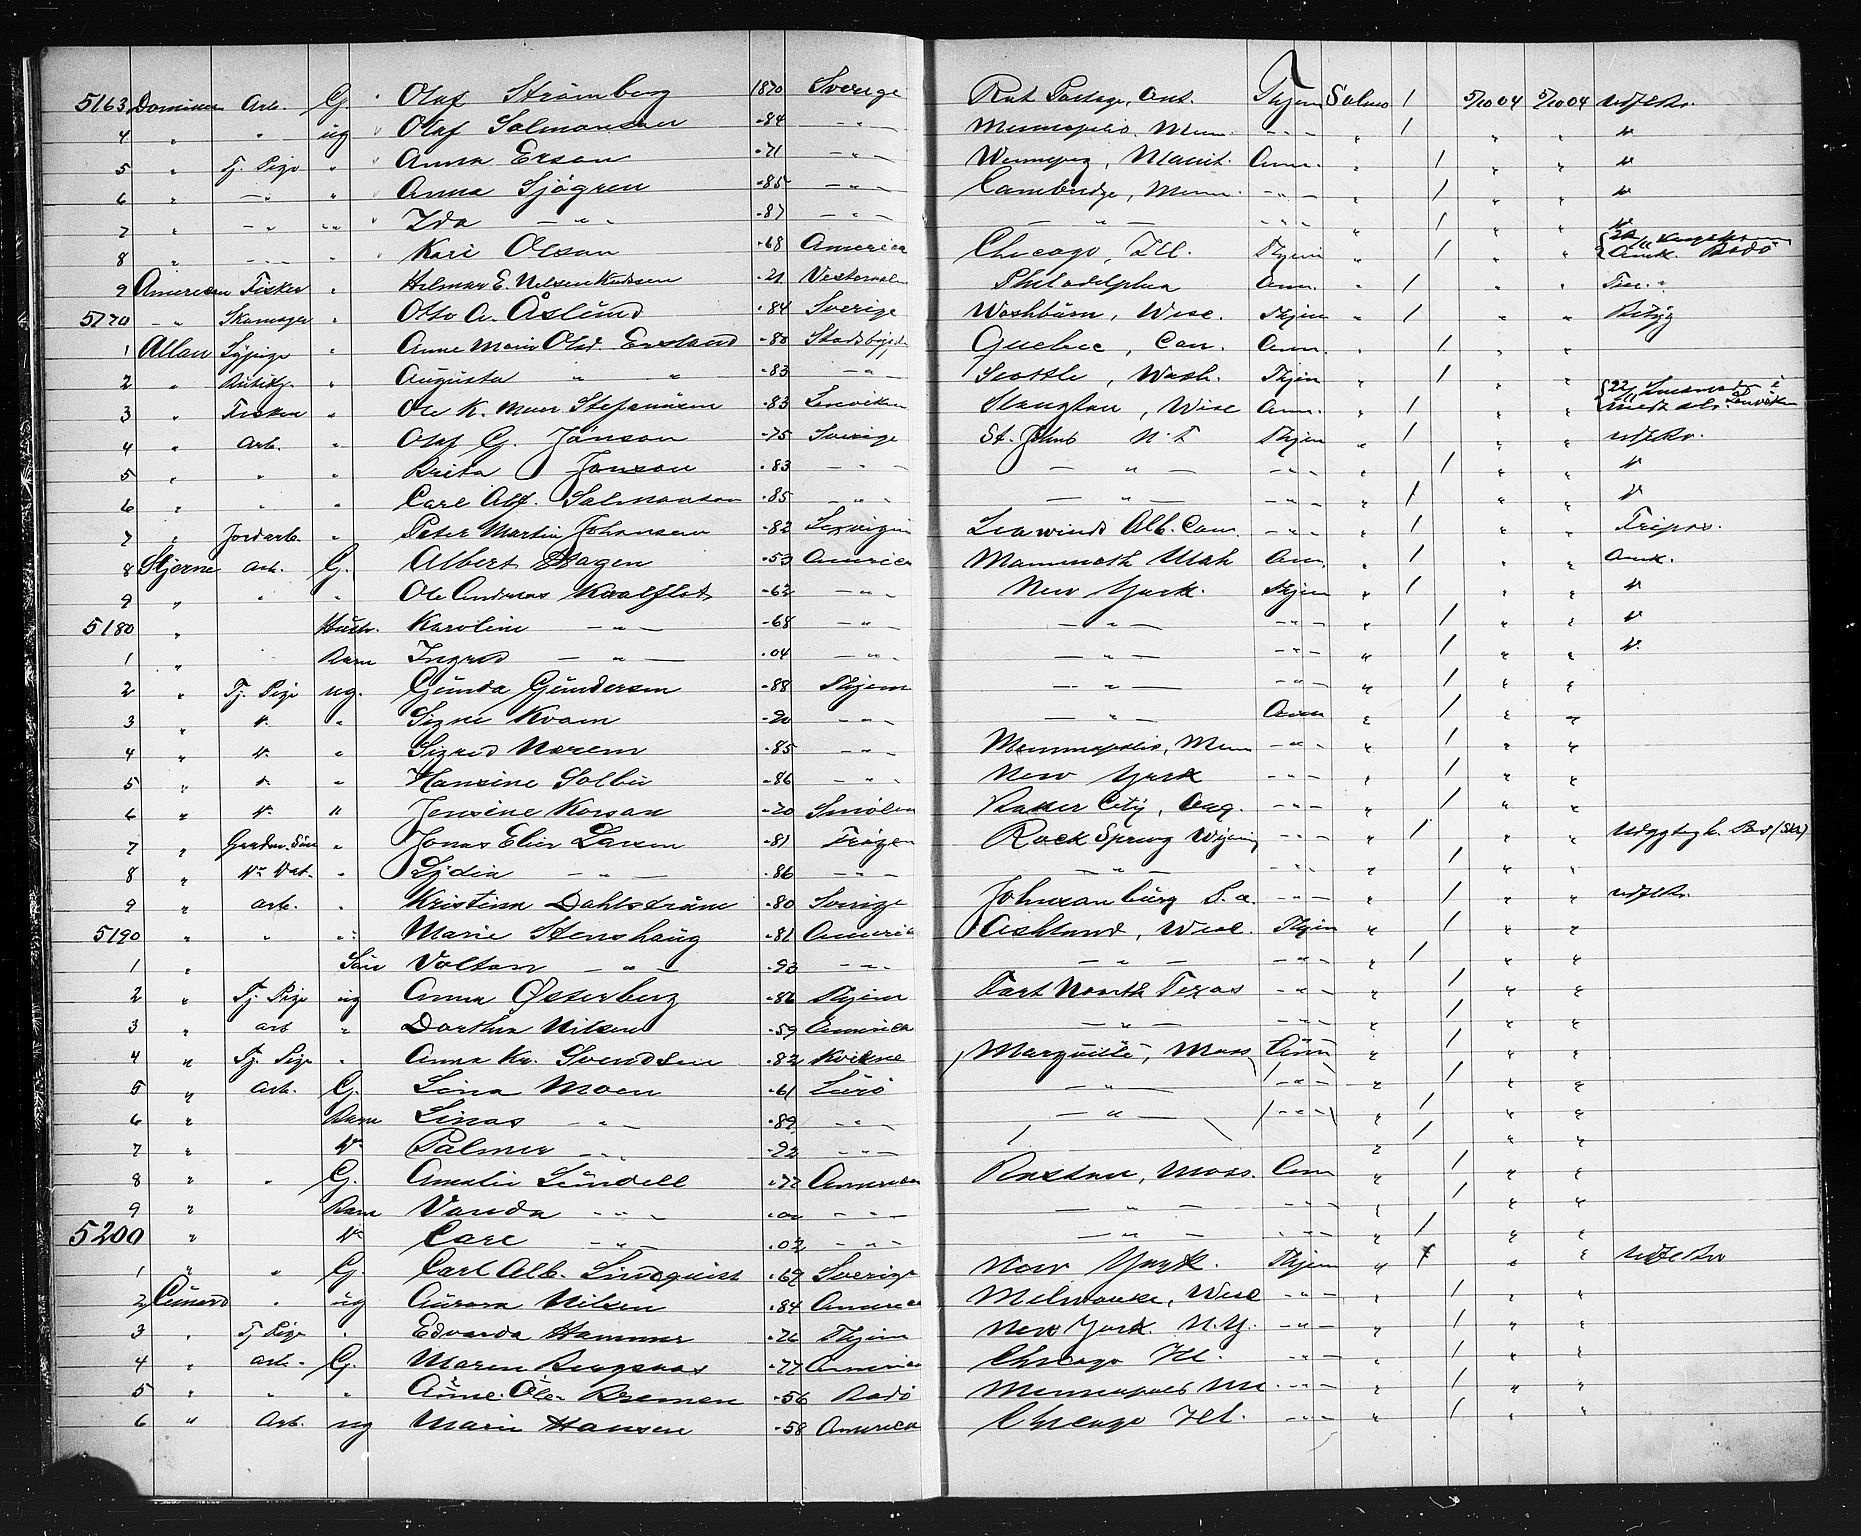 5163 Dominion Arb. G. Olaf Strömberg 1870 Sverige Rat Portage, Ont. Thjem Salmo / 5/10 04 5/10 04
4 " " ug Olaf Salmonsen -84 - " - Minneapolis, Minn. - " - " / " " "
5 " Tj. Pige " Anna Erson -71 - " - Winnipeg, Manit. Ann. " / " "
6 " - " - " Anna Sjögren -85 - " - Cambridge, Minn. - " - " / " "
7 " - " - " Ida - " - -87 - " - - " - - " - " / " "
8 " - " - " Kari Olson -68 America Chicago, Ill. Thjem " / " " Amk. Bodö
9 American Fisker " Hilmar E. Nilsen Knudsen -21 Vesteraalen Philadelphia Ann. " / " "
5170 - " Skomager " Otto A. Åslund -84 Sverige Washburn, Wisc. Thjem " / " "
1 Allan Sypige " Anne Marie Olsd. Ersland -80 Stadsbygd Quebec, Can. Ann. " / " "
2 " " Augusta " " -83 - " - Seattle, Wash. Thjem " / " "
3 " Fisker " Ole K. Moen Stefansen -83 Lenviken Stoughton, Wisc Ann. " / " " Lenviken
4 " Arb. " Olaf G. Jonson -75 Sverige St. Johns N. F. Thjem " / " "
5 " " " Brita Jonson -83 - " - - " - - " - " / " "
6 " " " Carl Alf. Salmonson -85 - " - - " - - " - " / " "
7 " Jordarb. " Peter Martin Johansen -82 Alb. Can. - " - " / " "
8 Stjerne Arb. G. Albert Hagen -53 America Mammoth Utah Ann. " / " " Amk.
9 " " " Ole Andreas Kvalflot -62 - " - New York. Thjem " / " "
5180 " Hustr. Karoline - " - -68 - " - - " - - " - " / " "
1 " Barn Ingrid - " - -04 - " - - " - - " - " / " "
2 " Tj. Pige ug. Gunda Gundersen -88 Thjem - " - - " - " / " "
3 " " " Signe Kvam -20 - " - - " - Ann " / " "
4 " " " Sigrid Norem -85 - " - Minneapolis, Minn - " - " / " "
5 " " " Hansine Solbu -86 - " - New York - " - " / " "
6 " " " Jensine Korsan -70 Smölen Baker City, Oreg. - " - " / " "
7 " Gaardm. Sön " Jonas Elier Larsen -81 Fröyen Rock Spring Wyoming - " - " / " "
8 " Dat. " Lydia - " - -86 - " - - " - " / " "
9 " Arb. " Kristina Dahlström -80 Sverige Johnsonburg P.a. - " - " / " "
5190 " " " Marie Stenshaug -81 America Ashland, Wisc. Thjem " / " "
1 " Sön Volton - " - -93 - " - - " - - " - " / " "
2 " Tj. Pige ug Anna Österberg -82 Thjem Fort Worth Texas - " - " / " "
3 " Arb " Dorthea Nilsen -59 America - " - - " - " / " "
4 " Tj. Pige " Anna Kr. Svendsen -82 Kvikne Marquitte, Mass Ann " / " "
5 " Arb. G. Lina Moen -61 Lurö - " - - " - " / " "
6 " Barn Linas - " - -89 - " - - " - - " - " / " "
7 " " Palmer - " - -92 - " - " / " "
8 " " G. Amalie Lundell -72 America Boston, Mass. Ann " / " "
9 " Barn Vanda - " - - " - - " - - " - " / " "
5200 " " Carl - " - -02 - " - - " - - " - " / " "
1 " " G. Carl Alb. Lindquist -69 Sverige New York. Thjem " / " "
2 Cunard " ug Aurora Nilsen -84 America Milwauke, Wisc - " - " / " "
3 " Tj Pige " Edvarda Hammer -76 Thjem New York. N.Y. - " - " / " "
4 " Arb. G. Maren Bergsnas -77 America Chicago Ill. - " - " / " "
5 " " " Anne. Ole. Bremen -56 Bodö Minneapolis Mi. - " - " / " "
6 " Arb. ug Marie Hansen -58 America Chicago Ill. - " - " / " "